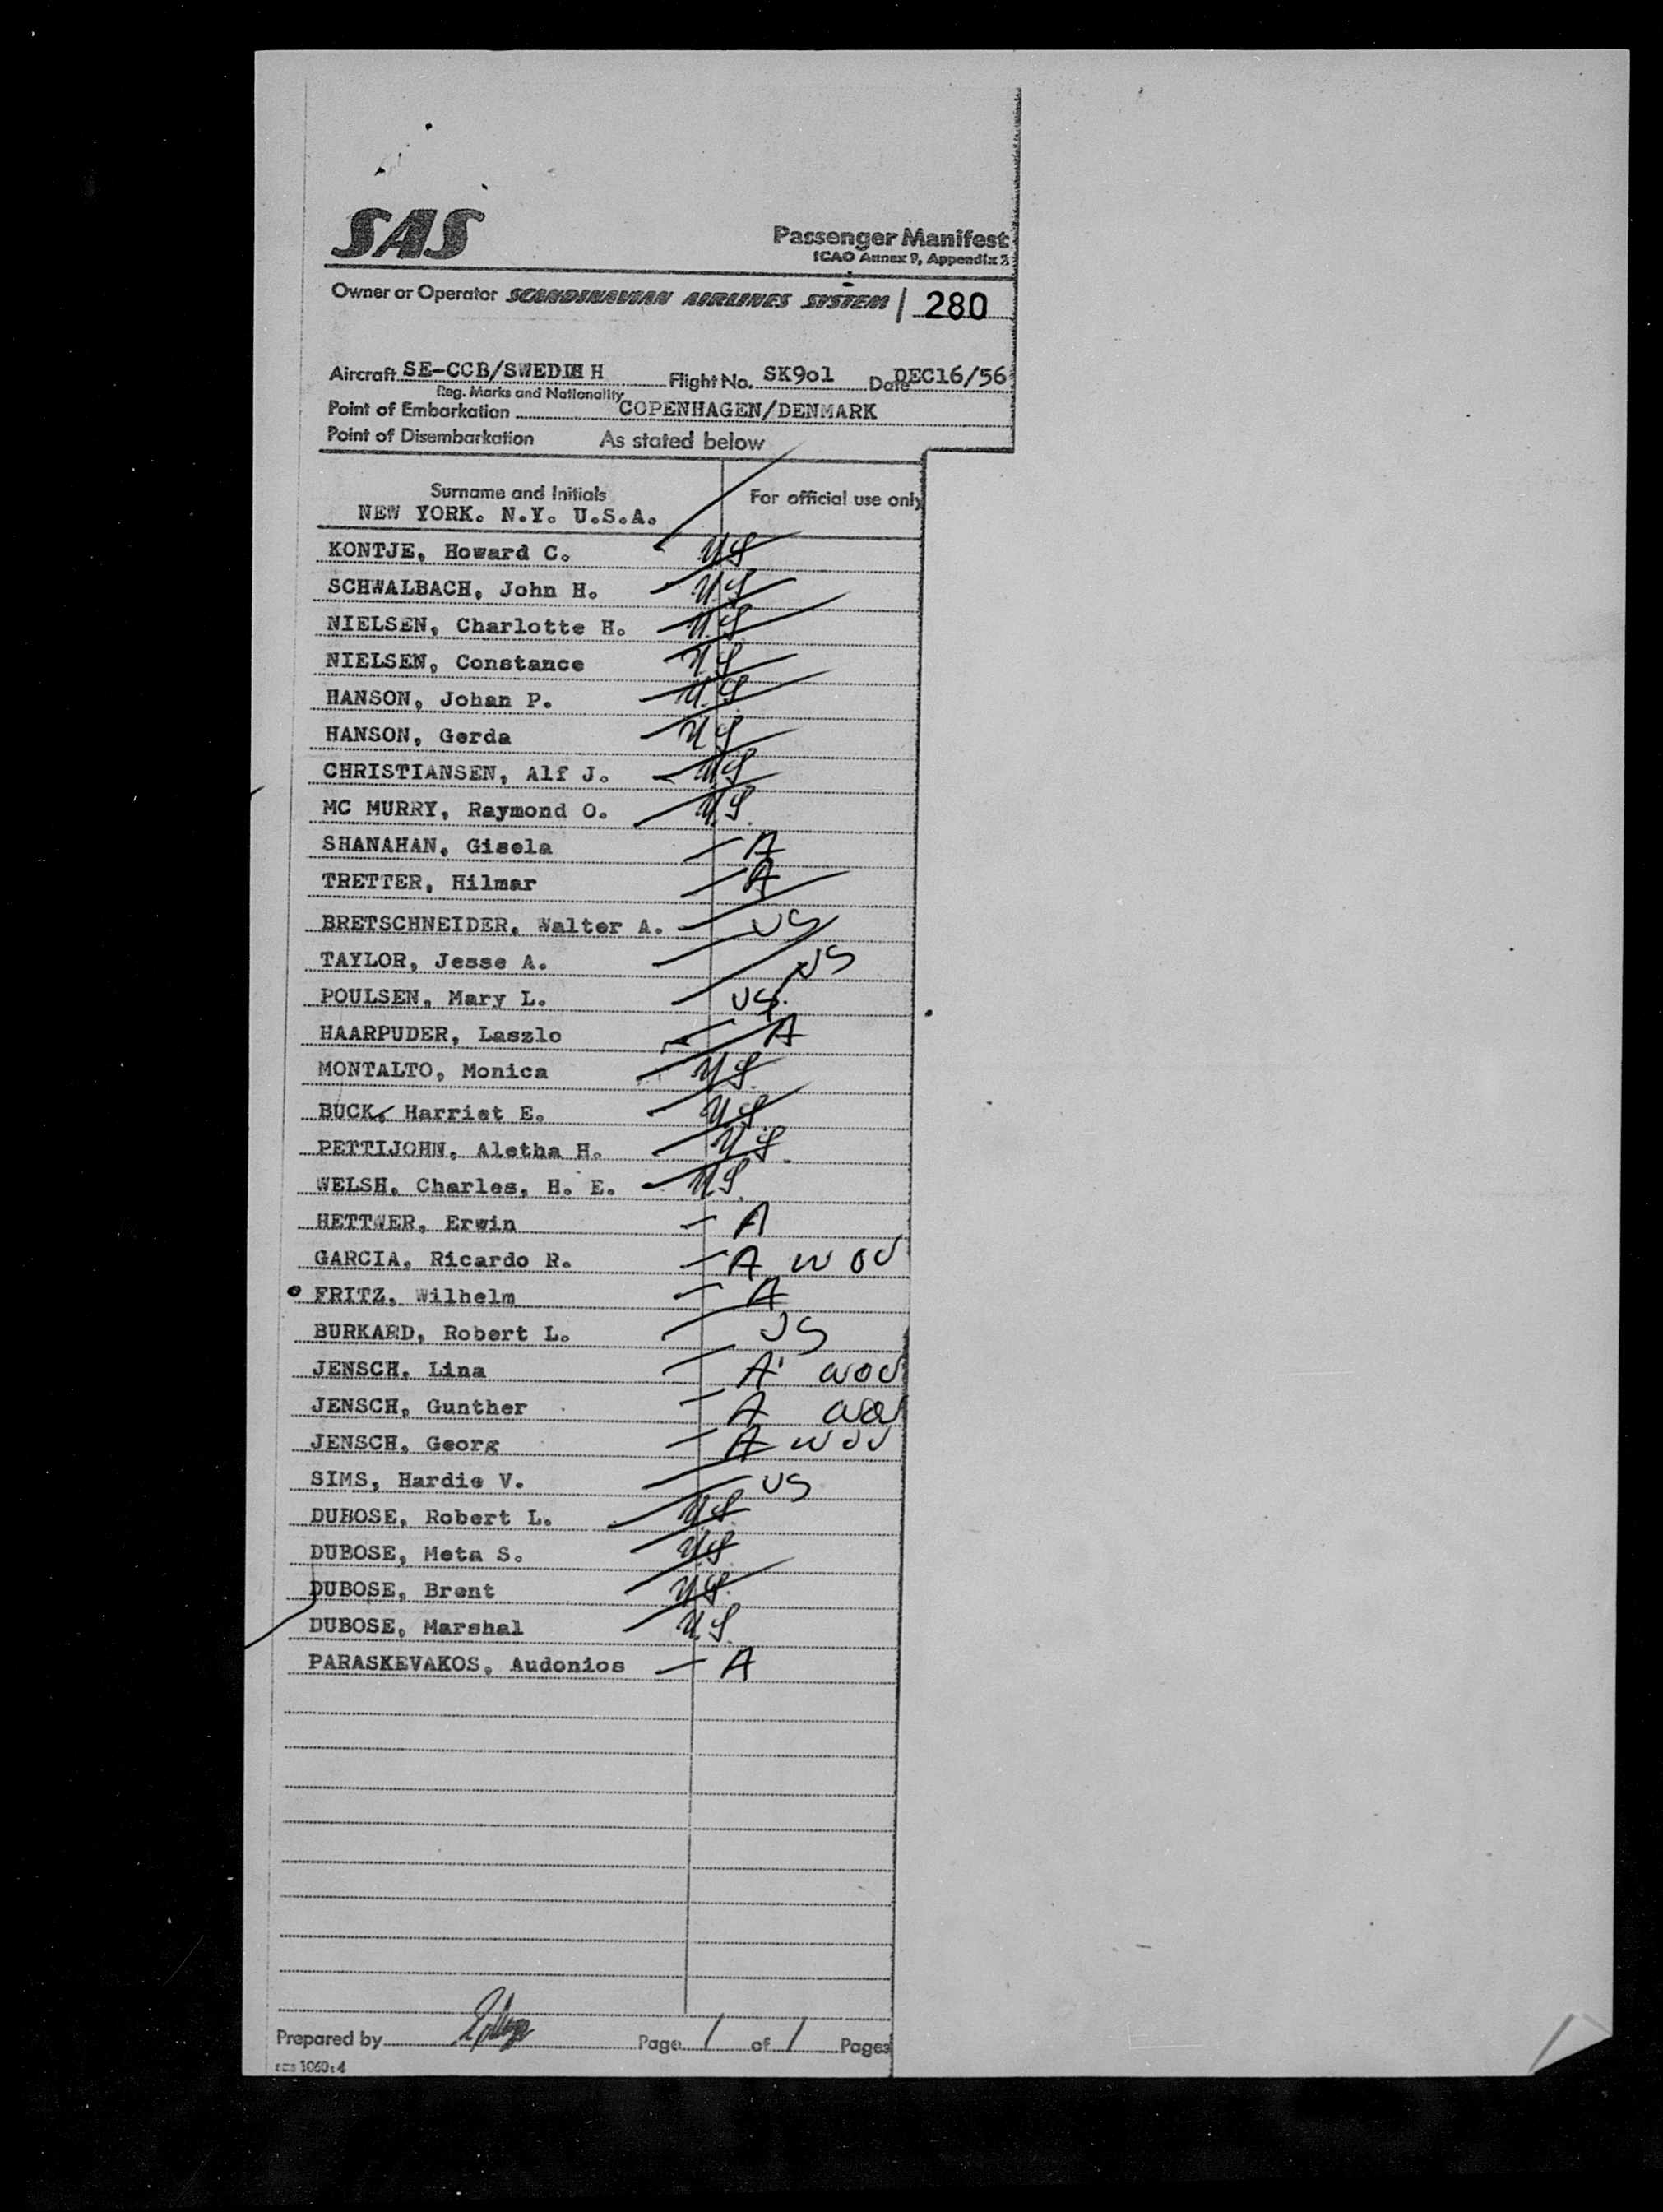 SAS
Passenger Manifest
ICAO Annex 9, Appendix 3
Owner or Operator SCANDINAVIAN AIRLINES SYSTEM / 280
Aircraft SE-CCB/SWEDISH Flight No. SK9o1 Date DEC16/56
Reg. Marks and Nationality
Point of Embarkation COPENHAGEN/DENMARK
Point of Disembarkation As stated below
Surname and Initials For official use only
NEW YORK. N.Y. U.S.A.
KONTJE, Howard C. US
SCHWALBACH, John H. U.S
NIELSEN, Charlotte H. U.S.
NIELSEN, Constance US
HANSON, Johan P. U.S.
HANSON, Gerda US
CHRISTIANSEN, Alf J. US
MC MURRY, Raymond O. U.S.
SHANAHAN, Gisela A
TRETTER, Hilmar A
BRETSCHNEIDER, Walter A. US
TAYLOR, Jesse A. US
POULSEN, Mary L. US.
HAARPUDER, Laszlo A
MONTALTO, Monica US.
BUCK, Harriet E. U.S.
PETTIJOHN, Aletha H. U.S.
WELSH, Charles, H. E. U.S.
HETTWER, Erwin A
GARCIA, Ricardo R. A WOV
FRITZ, Wilhelm A
BURKARD, Robert L. US
JENSCH, Lina A WOV
JENSCH, Gunther A WOV
JENSCH, Georg A WOV
SIMS, Hardie V. US
DUBOSE, Robert L. U.S.
DUBOSE, Meta S. U.S.
DUBOSE, Brent US.
DUBOSE, Marshal U.S.
PARASKEVAKOS, Audonios A
Prepared by Page 1 of 1 Pages
1060:4